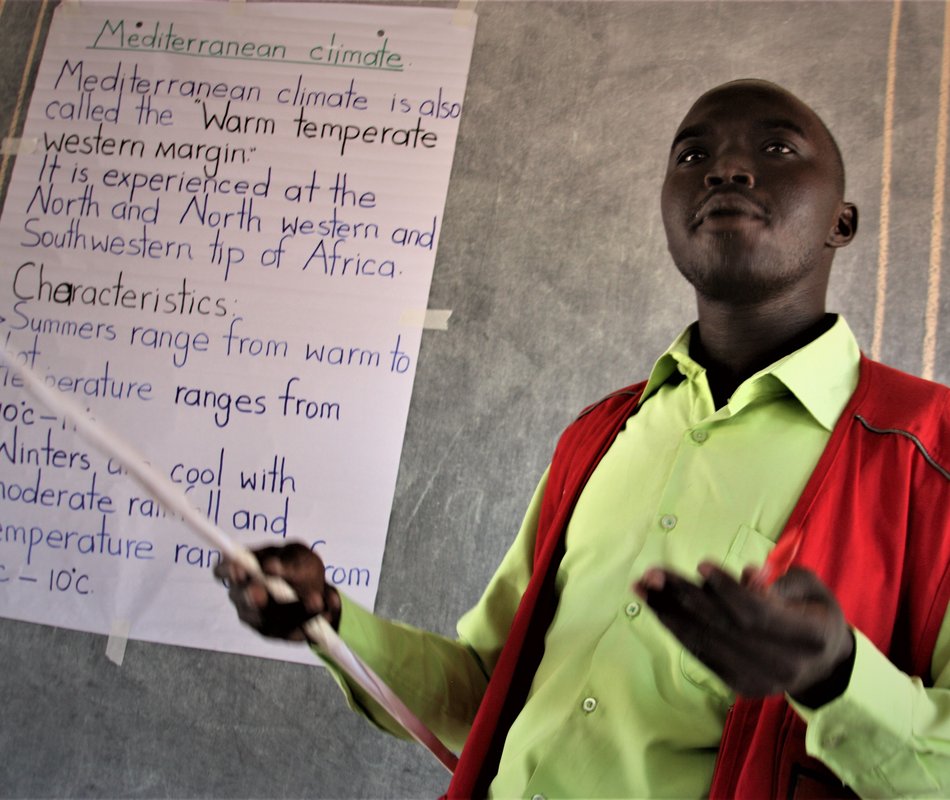 Mediterranean climate.
Mediterranean climate is also
called the "Warm temperate
western Margin."
It is experienced at the
North and North western and
Southwestern tip of Africa.
Characteristics:
Summers range from warm to
hot
ranges from
Winters are cool with
moderate rainfall and
from
- 10°C.